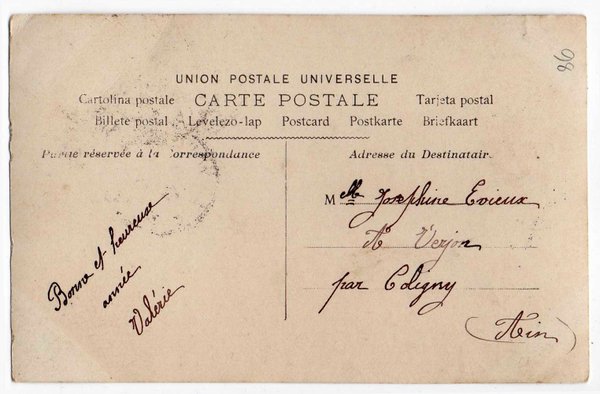 86
UNION POSTALE UNIVERSELLE
Cartolina postale CARTE POSTALE Tarjeta postal
Billete postal Levelezo-lap Postcard Postkarte Briefkaart
Partie réservée à la correspondance
Adresse du Destinataire
Bonne et heureuse
année
Valérie
Melle Josephine Evieux
A Verjon
par Coligny
(Ain)